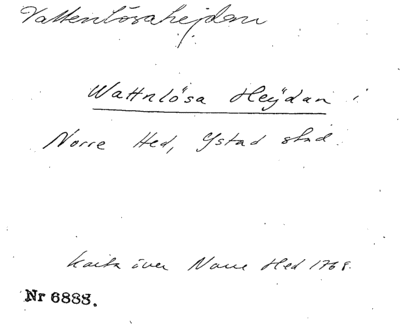 Vattenlösahejdan
Wattnlösa Heÿdan i
Norre Hed, Ystad stad.
karta över Norre Hed 1768.
Nr 6888.